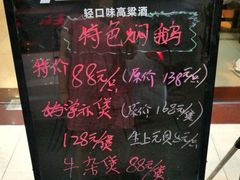 轻口味高粱酒
特色焖鹅
特价 88元/点 (原价 138元/点)
煲 (原价 168元/煲)
128元/煲 生上元贝
牛杂煲 88元/煲